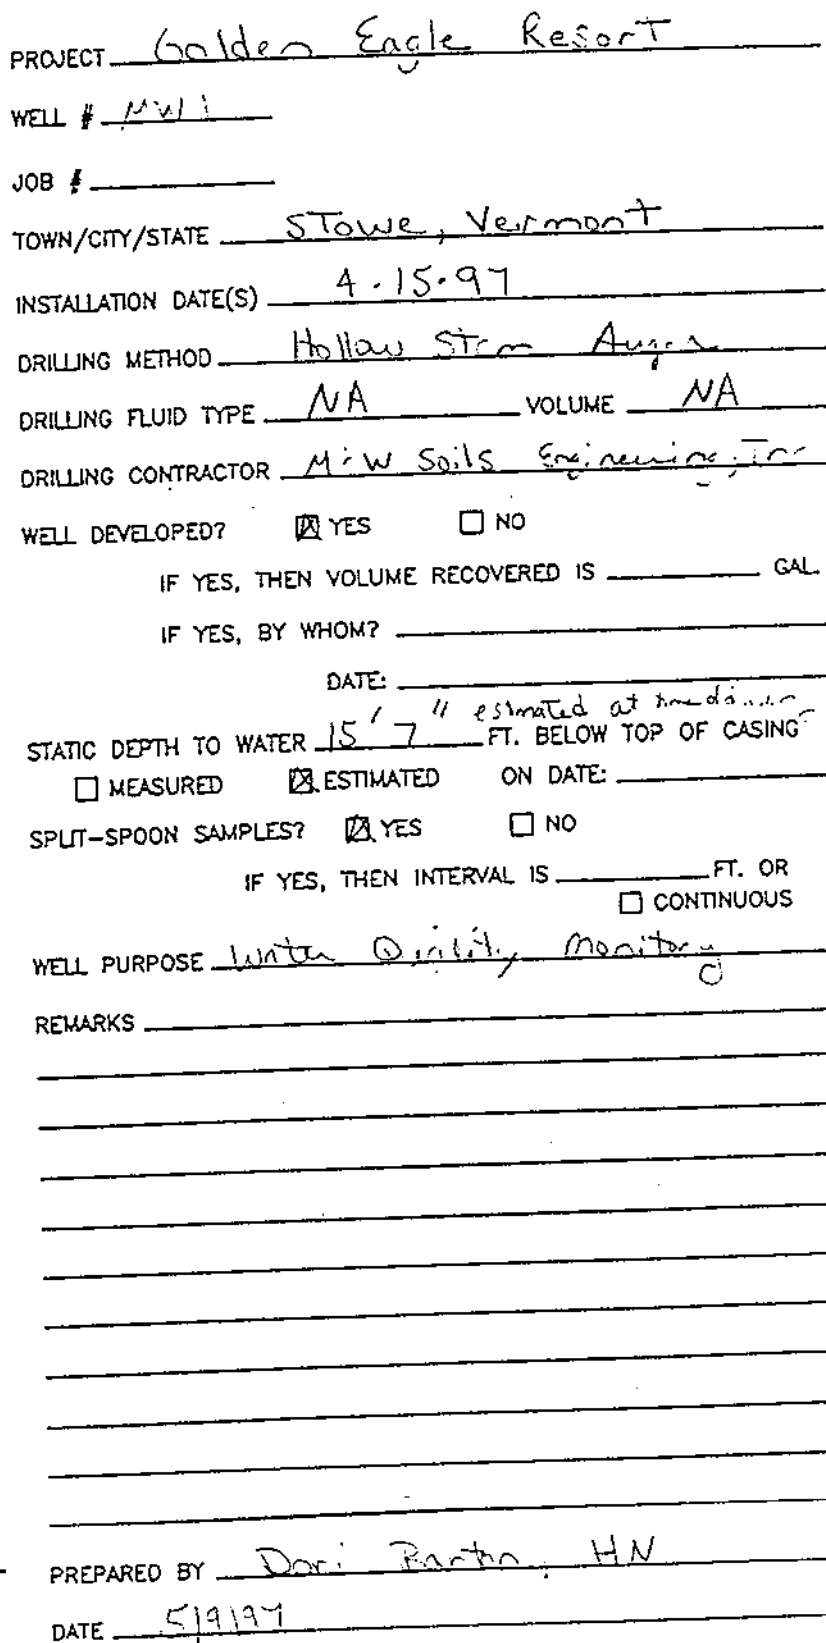 PROJECT Golden Eagle Resort
WELL # MW1
JOB #
TOWN/CITY/STATE Stowe, Vermont
INSTALLATION DATE(S) 4.15.97
DRILLING METHOD Hollow Stem Auger
DRILLING FLUID TYPE NA VOLUME NA
DRILLING CONTRACTOR M&W Soils Engineering, Inc
WELL DEVELOPED? YES NO
IF YES, THEN VOLUME RECOVERED IS GAL.
IF YES, BY WHOM?
DATE:
estimated at time
STATIC DEPTH TO WATER 15' 7" FT. BELOW TOP OF CASING
MEASURED ESTIMATED ON DATE:
SPLIT-SPOON SAMPLES? YES NO
IF YES, THEN INTERVAL IS FT. OR
CONTINUOUS
WELL PURPOSE Water Quality Monitoring
REMARKS
PREPARED BY Dori Barton, HN
DATE 5/9/97